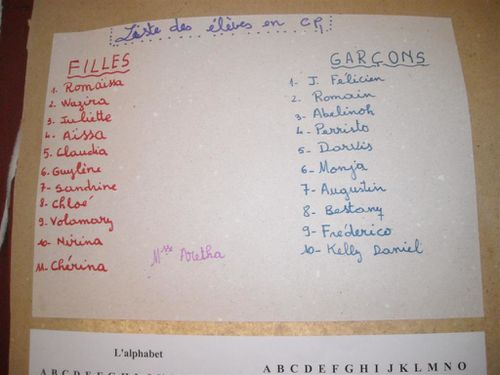 Liste des élèves en CP
FILLES
1. Romaissa
2. Wazira
3. Juliette
4. Aïssa
5. Claudia
6. Guylène
7- Sandrine
8- Chloé
9. Volamary
10- Nirina
11- Chérina
Melle Aretha
GARÇONS
1- J. Félicien
2. Romain
3- Abelinoh
4- Perristo
5- Darvis
6- Monja
7- Augustin
8- Bestany
9- Fréderico
10- Kelly Daniel
L'alphabet
A B C D E F G H I J K L M N O